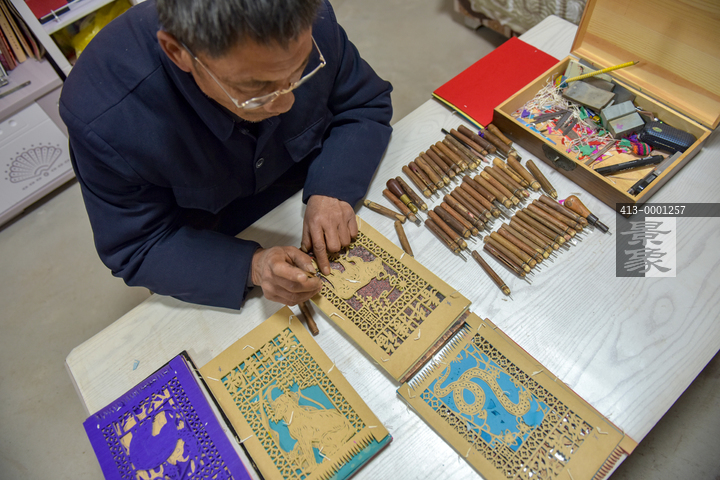 413-0001257
景象